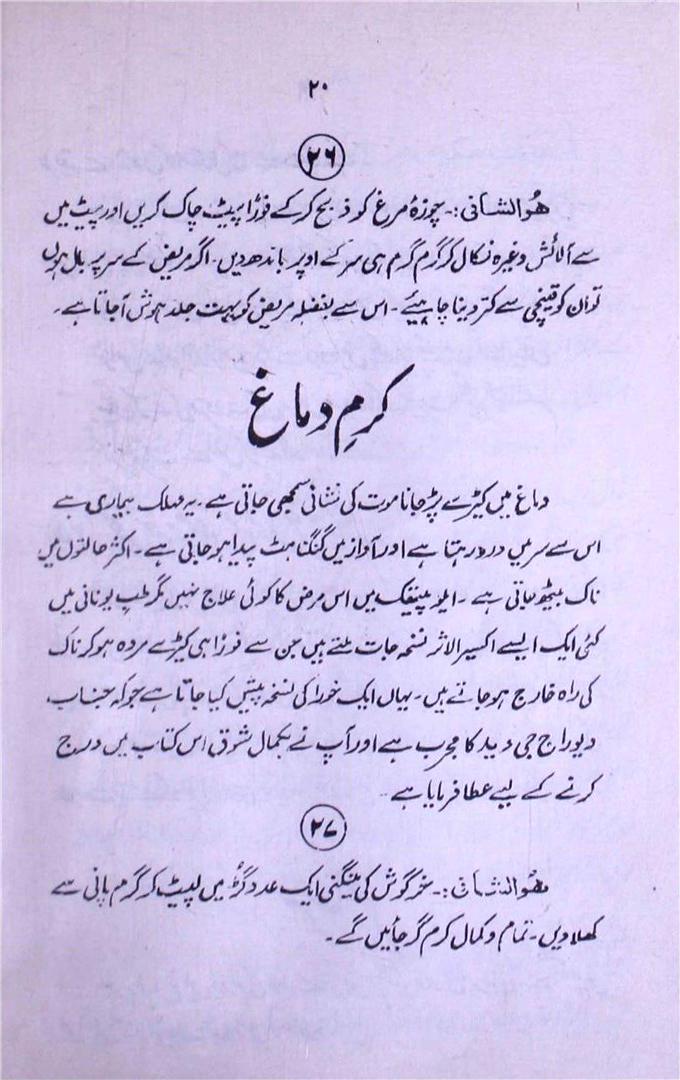 ۲۰
۲۶
ھُوالشافی:۔ چوزۂ مرغ کو ذبح کرکے فوراً پیٹ چاک کریں اور پیٹ میں
سے آلائش وغیرہ نکال کر گرم گرم ہی سر کے اوپر باندھ دیں۔ اگر مریض کے سر پر بال ہوں
تو ان کو قینچی سے کتر دینا چاہیئے۔ اس سے بفضلہٖ مریض کو بہت جلد ہوش آجاتا ہے۔
کرمِ دماغ
دماغ میں کیڑے پڑ جانا موت کی نشانی سمجھی جاتی ہے۔ یہ مہلک بیماری ہے
اس سے سر میں درد رہتا ہے اور آواز میں گنگناہٹ پیدا ہو جاتی ہے۔ اکثر حالتوں میں
ناک بیٹھ جاتی ہے۔ ایلوپیتھک میں اس مرض کا کوئی علاج نہیں مگر طب یونانی میں
کئی ایک ایسے اکسیر الاثر نسخہ جات ملتے ہیں جن سے فوراً ہی کیڑے مردہ ہو کر ناک
کی راہ خارج ہو جاتے ہیں۔ یہاں ایک خوراکی نسخہ پیش کیا جاتا ہے جو کہ جناب
دیوراج جی وید کا مجرب ہے اور آپ نے بکمال شوق اس کتاب میں درج
کرنے کے لیے عطا فرمایا ہے۔
۲۷
ھوالشافی:۔ خرگوش کی مینگنی ایک عدد گڑ میں لپیٹ کر گرم پانی سے
کھلا دیں۔ تمام و کمال کرم گر جائیں گے۔